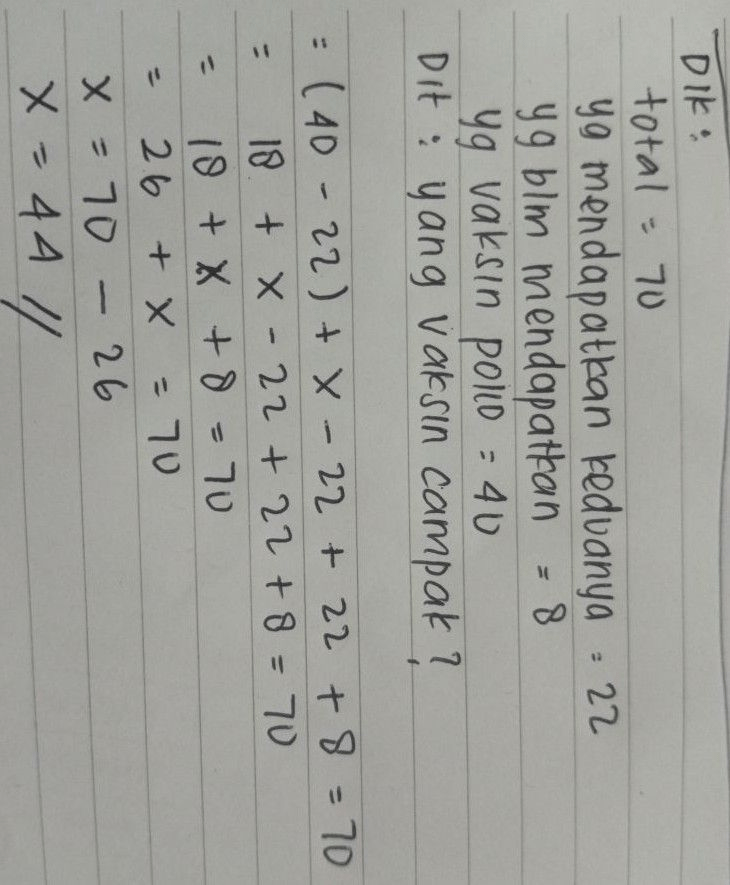 Dik :
total = 70
yg mendapatkan keduanya = 22
yg blm mendapatkan = 8
yg vaksin polio = 40
Dit : yang vaksin campak ?
= (40 - 22) + x - 22 + 22 + 8 = 70
= 18 + x - 22 + 22 + 8 = 70
= 18 + x + 8 = 70
= 26 + x = 70
x = 70 - 26
x = 44 //